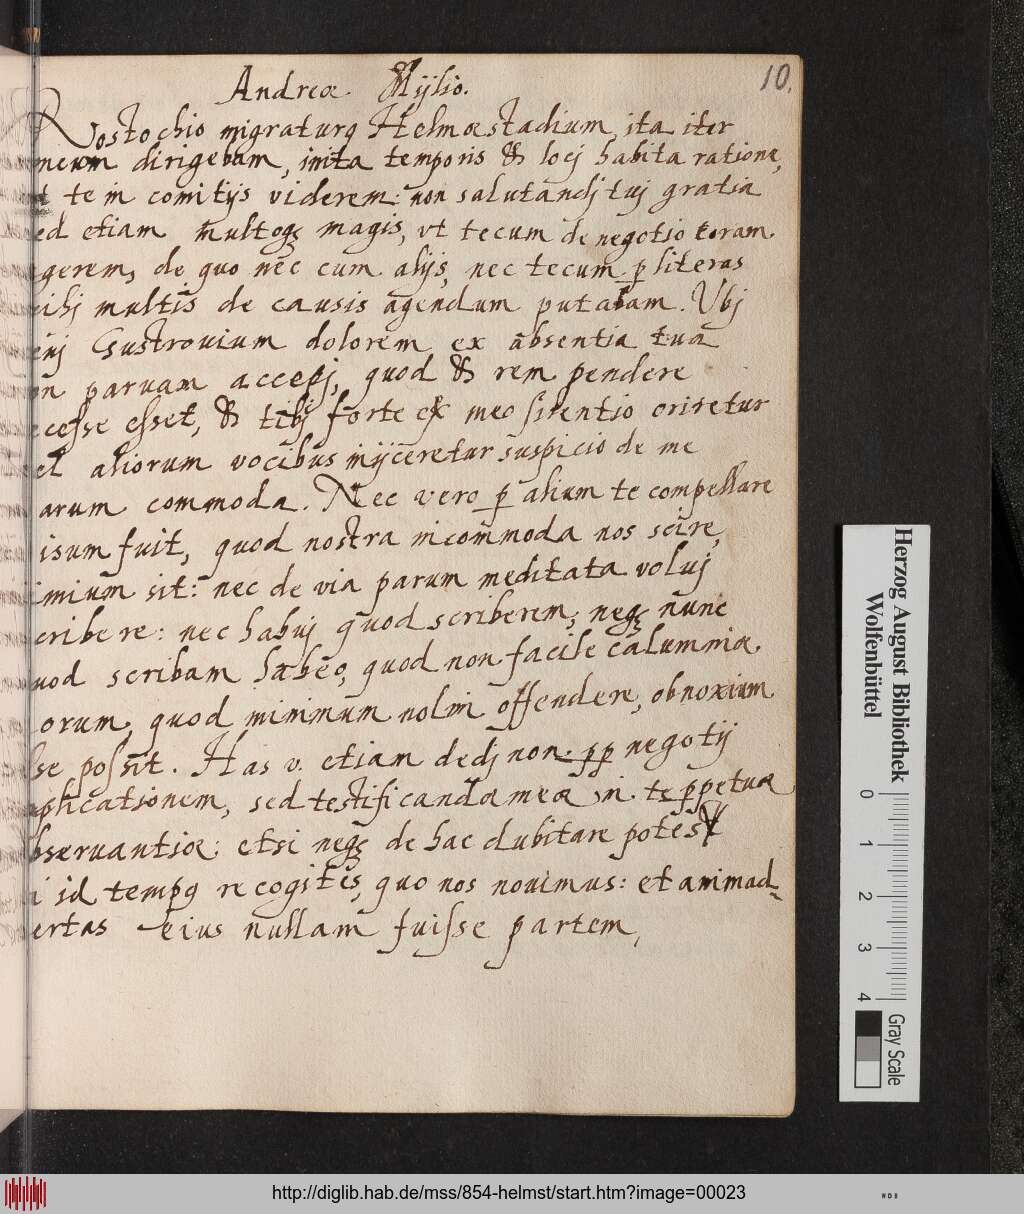 Andreæ Mylio.
10.
Rostochio migraturq Helmæstadium, ita iter
meum dirigebam, inita temporis & locj habita ratione,
te in comitijs viderem: non salutandj tuj gratia
ed etiam multoqȝ magis, vt tecum de negotio coram
gerem, de quo nec cum alijs, nec tecum ꝑ literas
ihj multis de causis agendum putabam. Vbj
Gustrouium dolorem ex absentia tua
n paruam accepj, quod & rem pendere
cesse esset, & tibj forte ex meo silentio oriretur
el aliorum vocibus inijceretur suspicio de me
arum commoda. Nec vero ꝑ alium te compellare
isum fuit, quod nostra incom̄moda nos scire,
imium sit: nec de via parum meditata voluj
cribere: nec habuj quod scriberem, neqȝ nunc
uod scribam habeo, quod non facile calumniæ
orum, quod minimum nolim offendere, obnoxium
se possit. Has v. etiam dedj non ꝓꝑ negotij
plicationem, sed testificandæ meæ in te ꝑpetuæ
bseruantiæ: etsi neqȝ de hac dubitare potest
i id tempq recogites, quo nos nouimus: et animad-
ertas eius nullam fuisse partem,
Herzog August Bibliothek
Wolfenbüttel
0 1 2 3 4
Gray Scale
http://diglib.hab.de/mss/854-helmst/start.htm?image=00023